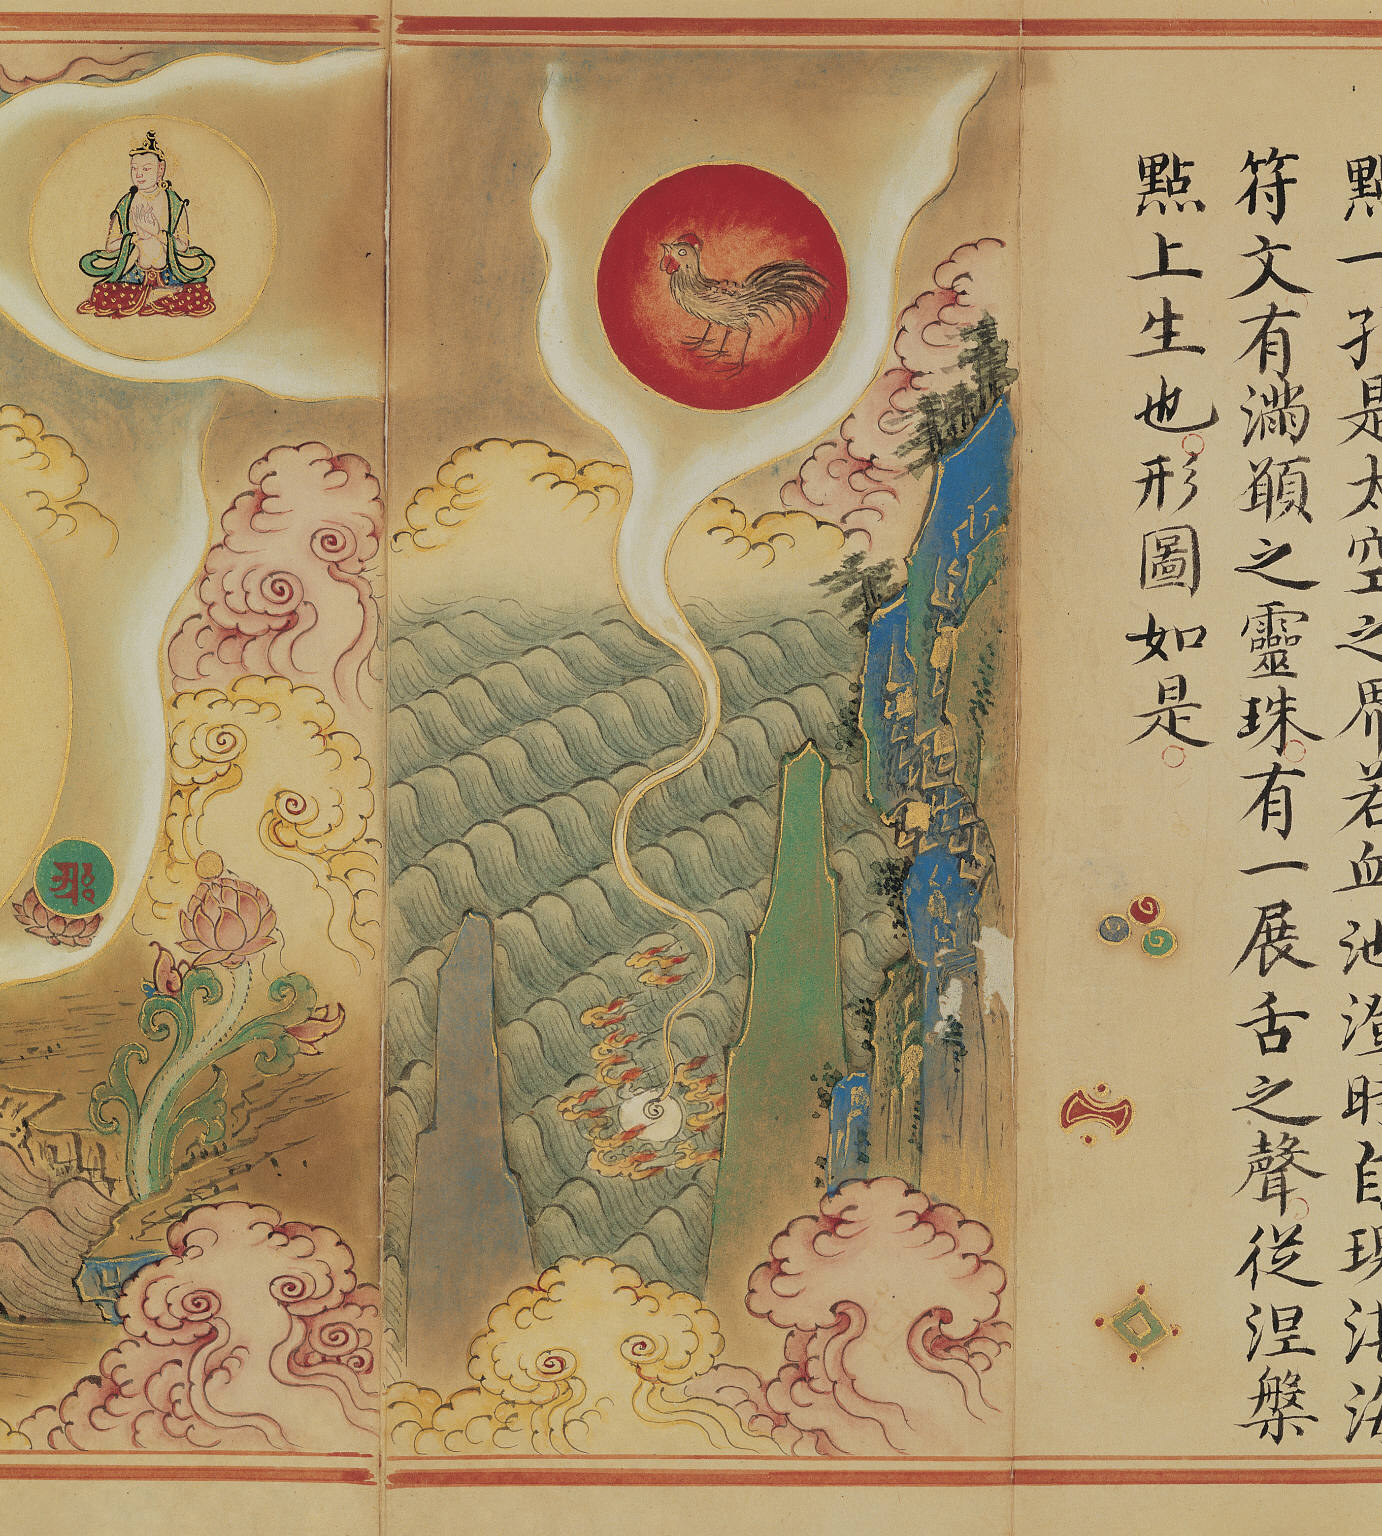 點一孔是太空之界若血池澄時自現海
符文有滿願之靈珠有一展舌之聲從涅槃
點上生也形圖如是